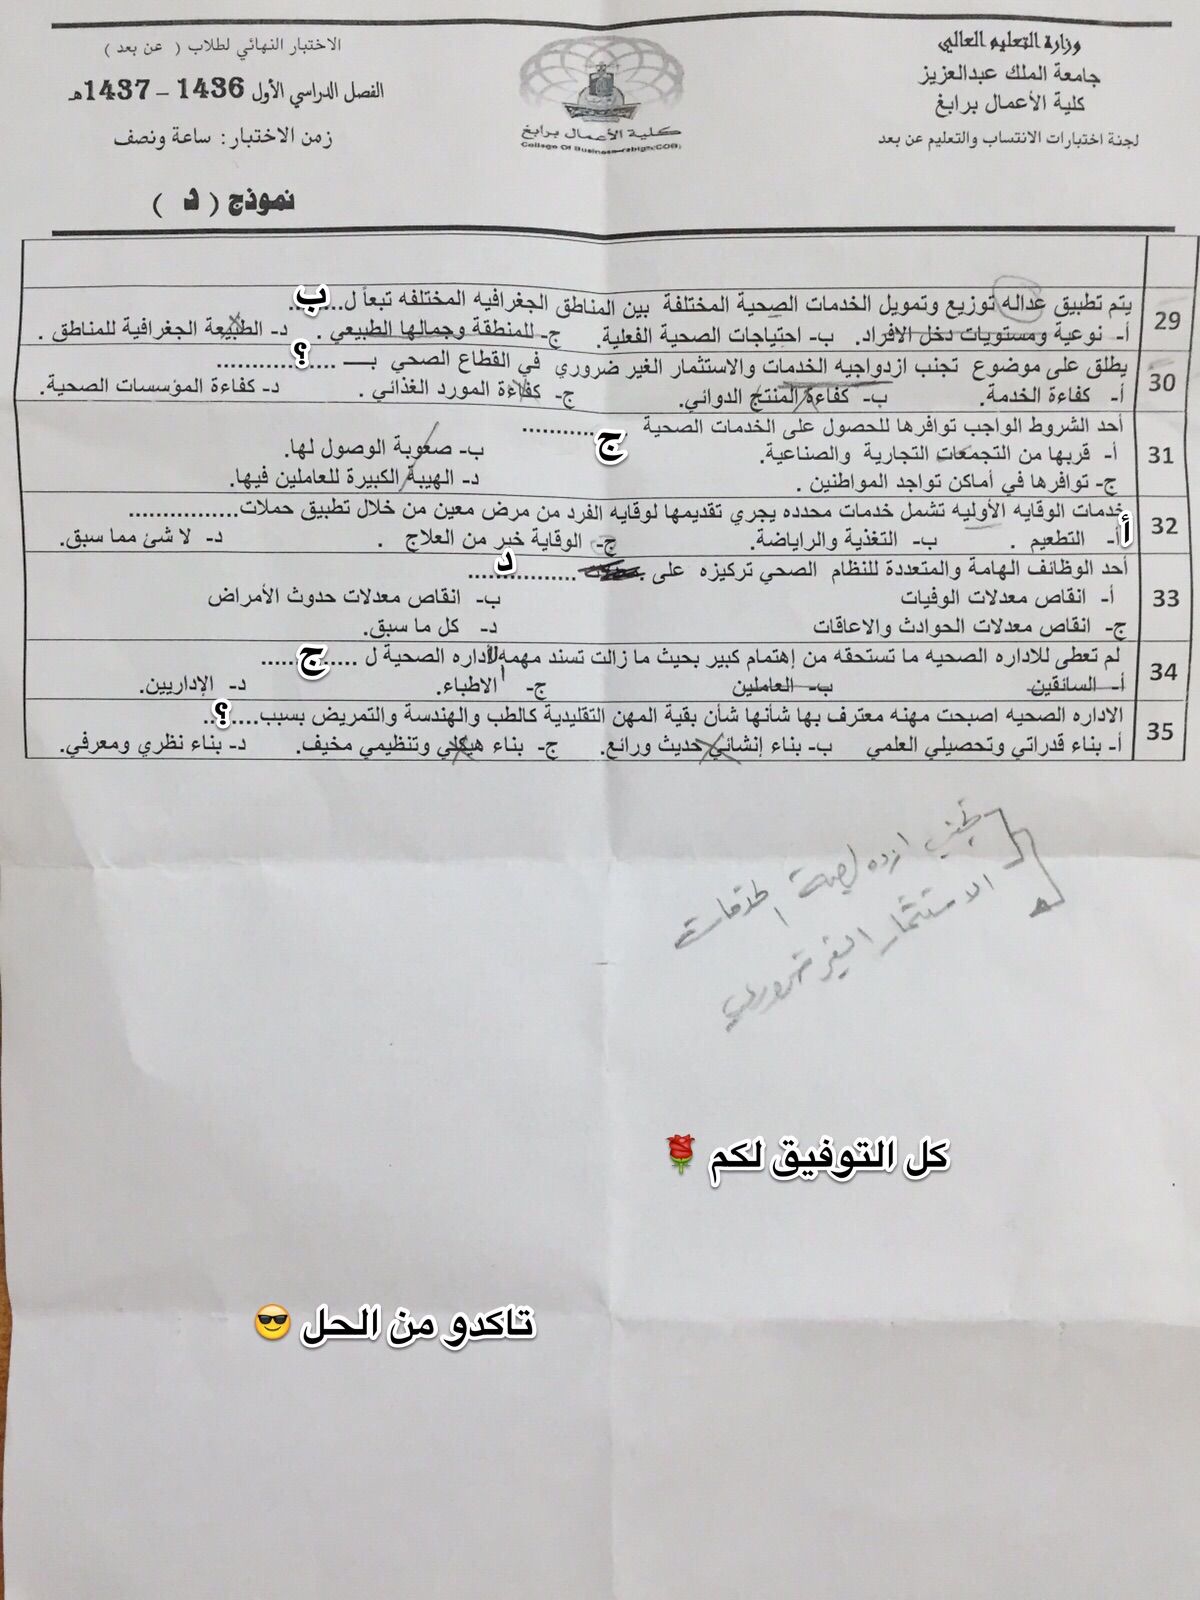 وزارة التعليم العالي
جامعة الملك عبدالعزيز
كلية الأعمال برابغ
لجنة اختبارات الانتساب والتعليم عن بعد
كلية الأعمال برابغ
College Of Business-rabigh(COB)
الاختبار النهائي لطلاب ( عن بعد )
الفصل الدراسي الأول 1436 – 1437هـ
زمن الاختبار: ساعة ونصف
نموذج ( د )
29 يتم تطبيق عداله توزيع وتمويل الخدمات الصحية المختلفة بين المناطق الجغرافيه المختلفه تبعاً ل........ ب
أ- نوعية ومستويات دخل الافراد. ب- احتياجات الصحية الفعلية. ج- للمنطقة وجمالها الطبيعي . د- الطبيعة الجغرافية للمناطق .
30 يطلق على موضوع تجنب ازدواجيه الخدمات والاستثمار الغير ضروري في القطاع الصحي بـــ ................ ؟
أ- كفاءة الخدمة. ب- كفاءة المنتج الدوائي. ج- كفاءة المورد الغذائي . د- كفاءة المؤسسات الصحية.
31 أحد الشروط الواجب توافرها للحصول على الخدمات الصحية ............... ج
أ- قربها من التجمعات التجارية والصناعية. ب- صعوبة الوصول لها.
ج- توافرها في أماكن تواجد المواطنين . د- الهيبة الكبيرة للعاملين فيها.
32 خدمات الوقايه الأوليه تشمل خدمات محدده يجري تقديمها لوقايه الفرد من مرض معين من خلال تطبيق حملات................
أ أ- التطعيم . ب- التغذية والراياضة. ج- الوقاية خير من العلاج . د- لا شئ مما سبق.
33 أحد الوظائف الهامة والمتعددة للنظام الصحي تركيزه على ................ د
أ- انقاص معدلات الوفيات ب- انقاص معدلات حدوث الأمراض
ج- انقاص معدلات الحوادث والاعاقات د- كل ما سبق.
34 لم تعطى للاداره الصحيه ما تستحقه من إهتمام كبير بحيث ما زالت تسند مهمه الاداره الصحية ل .............. ج
أ- السائقين ب- العاملين ج- الاطباء. د- الإداريين.
35 الاداره الصحيه اصبحت مهنه معترف بها شأنها شأن بقية المهن التقليدية كالطب والهندسة والتمريض بسبب........ ؟
أ- بناء قدراتي وتحصيلي العلمي ب- بناء إنشائي حديث ورائع. ج- بناء هيكلي وتنظيمي مخيف. د- بناء نظري ومعرفي.
تجنب ازدواجية الخدمات
الاستثمار الغير ضروري
كل التوفيق لكم 🌹
تاكدو من الحل 😎